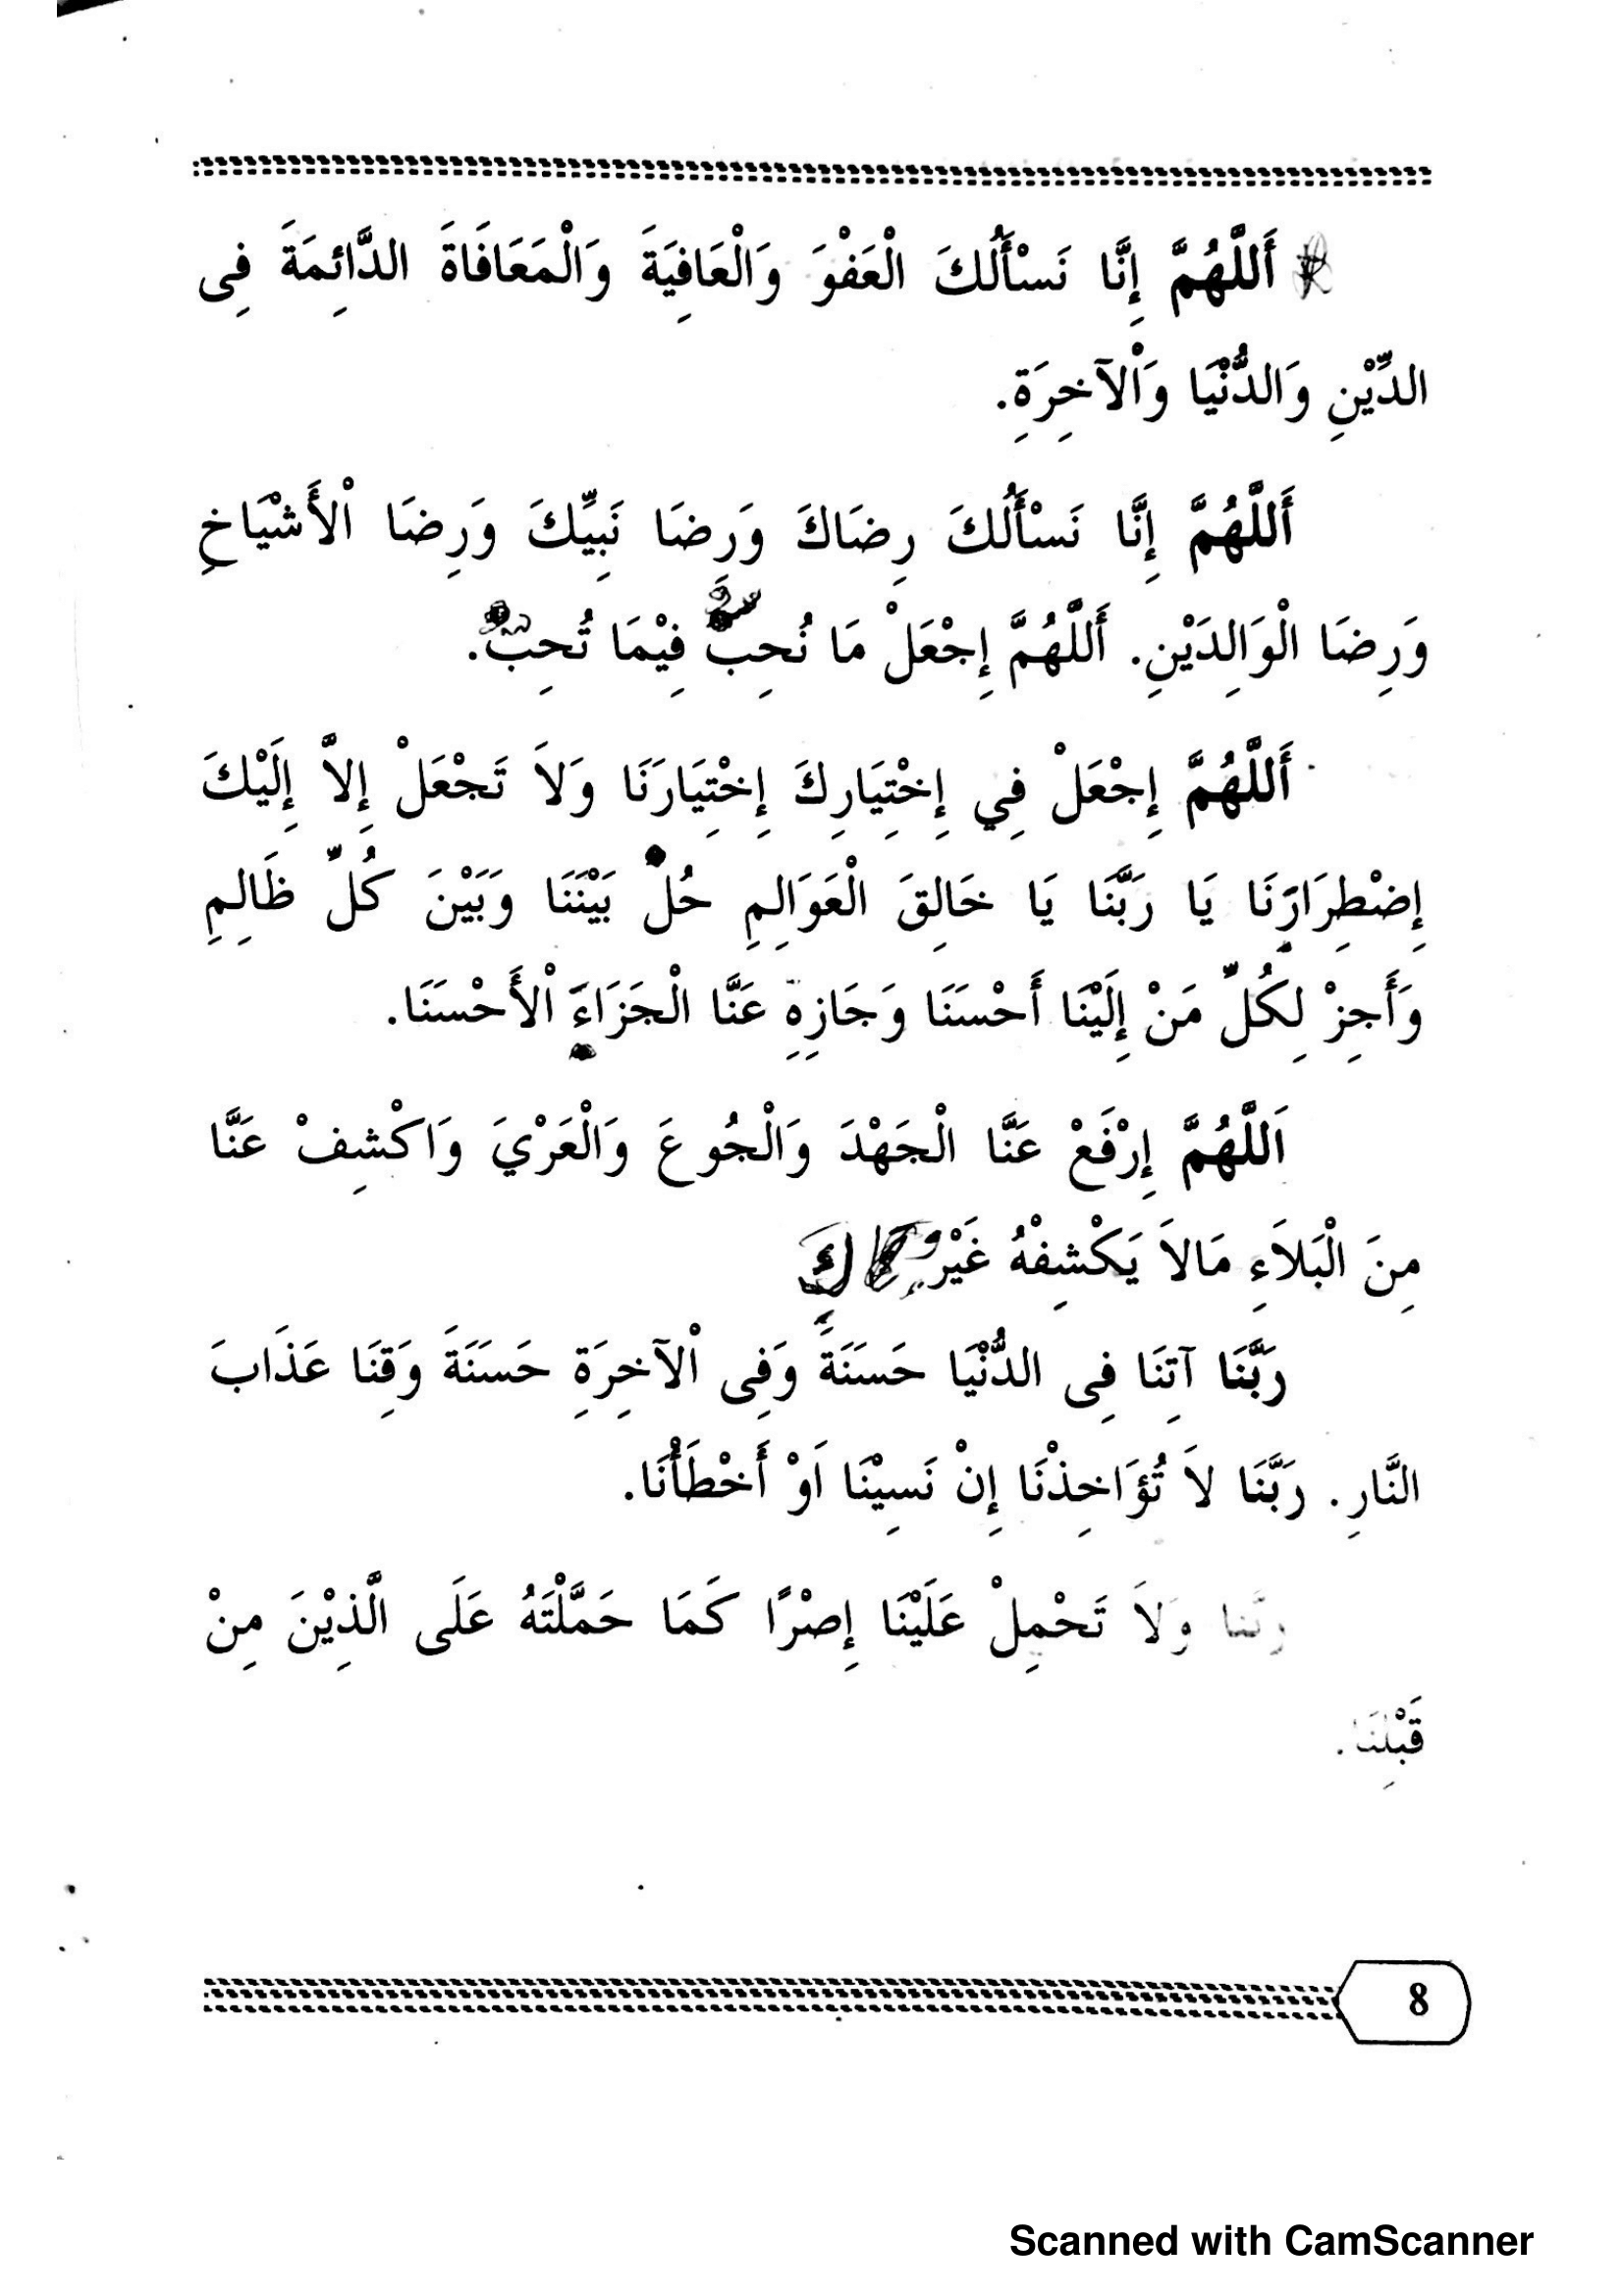 أَللَّهُمَّ إِنَّا نَسْأَلُكَ الْعَفْوَ وَالْعَافِيَةَ وَالْمَعَافَاةَ الدَّائِمَةَ فِى
الدِّيْنِ وَالدُّنْيَا وَاْلآخِرَةِ.
أَللَّهُمَّ إِنَّا نَسْأَلُكَ رِضَاكَ وَرِضَا نَبِيِّكَ وَرِضَا اْلأَشْيَاخِ
وَرِضَا الْوَالِدَيْنِ. أَللَّهُمَّ إِجْعَلْ مَا نُحِبُّ فِيْمَا تُحِبُّ.
أَللَّهُمَّ إِجْعَلْ فِي إِخْتِيَارِكَ إِخْتِيَارَنَا وَلاَ تَجْعَلْ إِلاَّ إِلَيْكَ
إِضْطِرَارَنَا يَا رَبَّنَا يَا خَالِقَ الْعَوَالِمِ حُلْ بَيْنَنَا وَبَيْنَ كُلِّ ظَالِمِ
وَأَجِزْ لِكُلِّ مَنْ إِلَيْنَا أَحْسَنَا وَجَازِهِ عَنَّا الْجَزَاءَ اْلأَحْسَنَا.
اَللَّهُمَّ إِرْفَعْ عَنَّا الْجَهْدَ وَالْجُوعَ وَالْعَرْيَ وَاكْشِفْ عَنَّا
مِنَ الْبَلاَءِ مَالاَ يَكْشِفْهُ غَيْرُكَ
رَبَّنَا آتِنَا فِى الدُّنْيَا حَسَنَةً وَفِى اْلآخِرَةِ حَسَنَةَ وَقِنَا عَذَابَ
النَّارِ. رَبَّنَا لاَ تُؤَاخِذْنَا إِنْ نَسِيْنَا اَوْ أَخْطَأْنَا.
رَبَّنَا وَلاَ تَحْمِلْ عَلَيْنَا إِصْرًا كَمَا حَمَّلْتَهُ عَلَى الَّذِيْنَ مِنْ
قَبْلِنَا.
8
Scanned with CamScanner